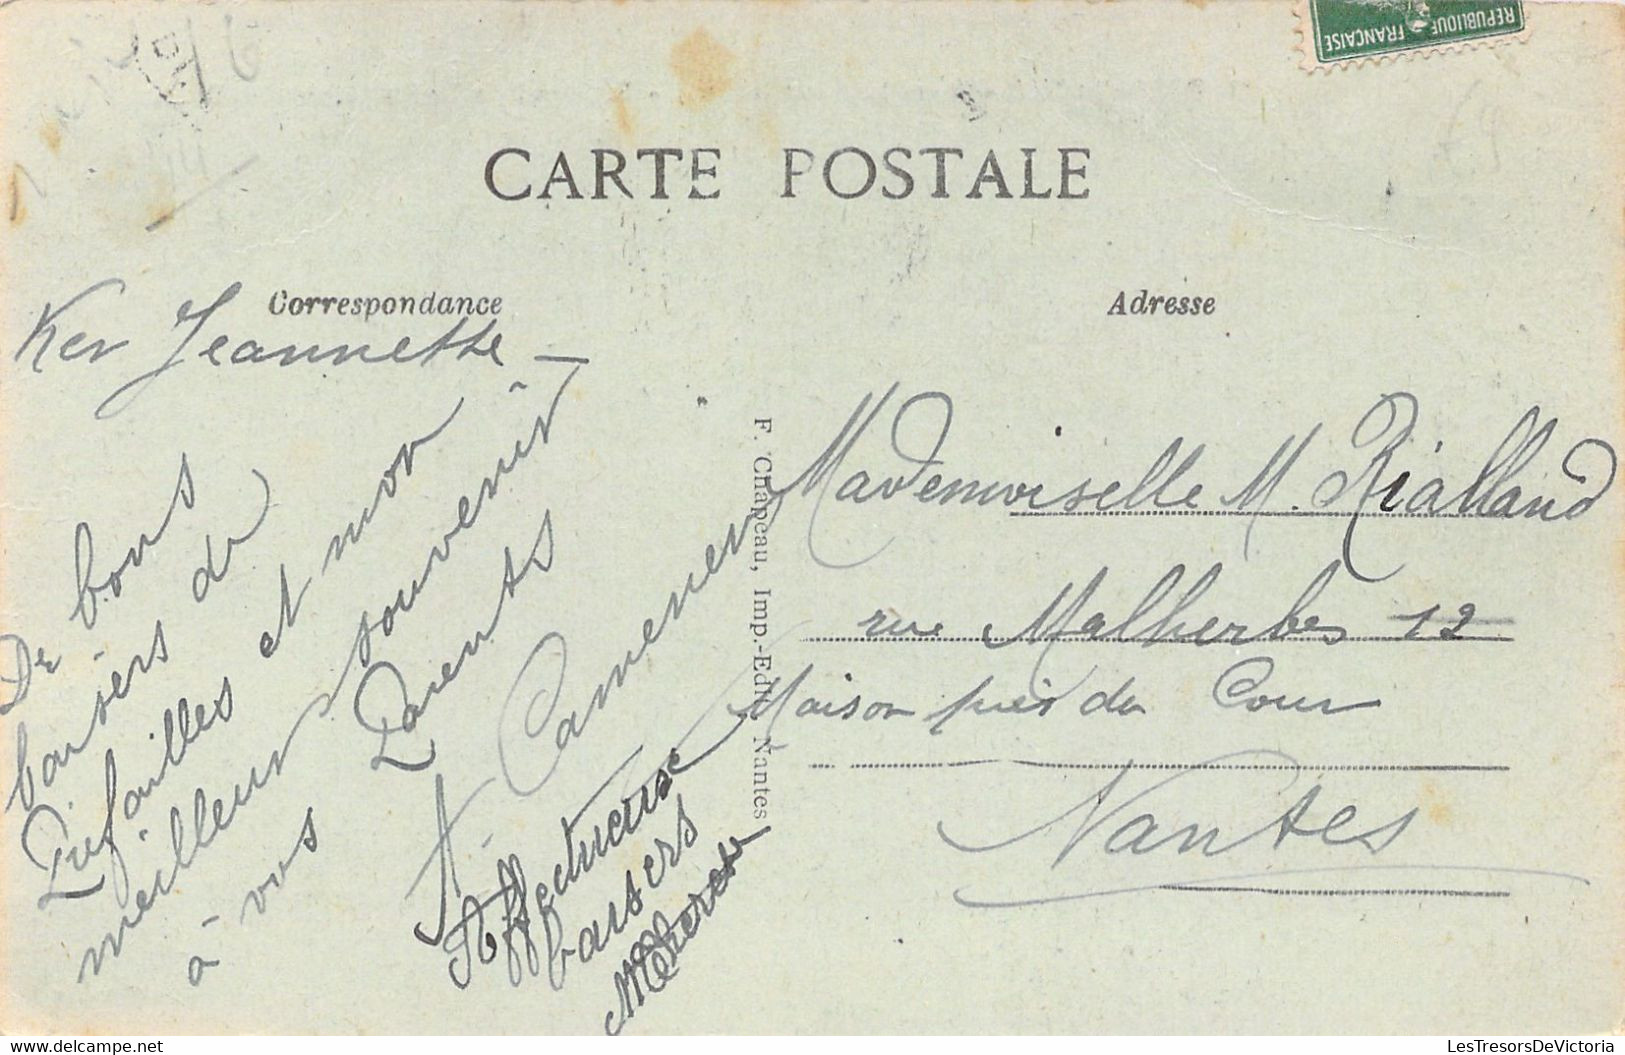 REPUBLIQUE FRANCAISE
CARTE POSTALE
Correspondance
Adresse
Ker Jeannette -
De bons
baisers de
Préfailles et mon
meilleur souvenir
à vos Parents
A. Camenen
Affectueuse
baisers
MTherese
F. Chapeau, Imp.-Edit. Nantes
Mademoiselle M. Rialland
rue Malherbes 12
Maison près du Cour
Nantes
delcampe.net
LesTresorsDeVictoria